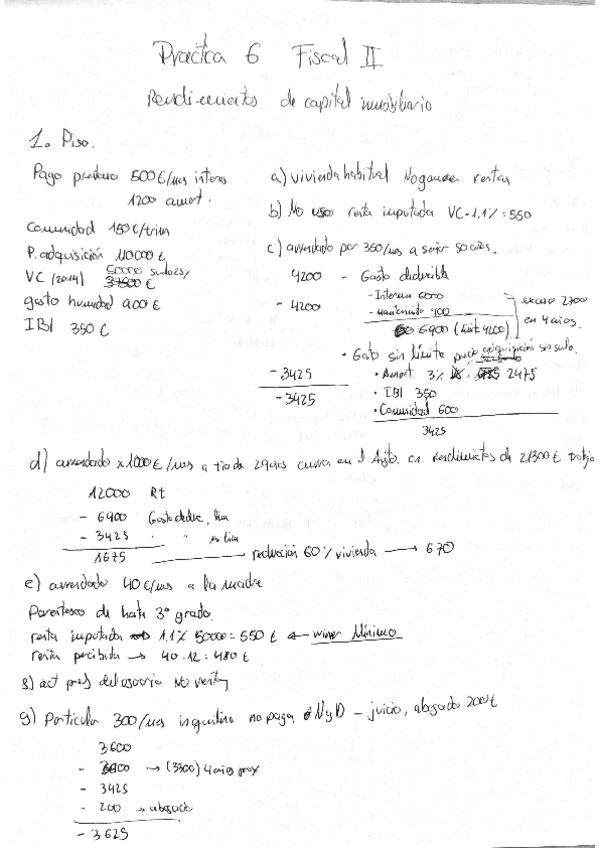 Practica 6 Fiscal II
Rendimientos de capital inmobiliario
1. Piso.
Pago prestamo 500€/mes interes
1200 amort.
Comunidad 150€/trim
P. adquisición 110000 €
VC (2014) 50000 suelo 25%
37500 €
gasto humedad 900 €
IBI 350 €
a) vivienda habitual No generan rentas
b) No uso renta imputada VC · 1,1% = 550
c) arrendado por 350/mes a señor 50 años.
4200 - Gasto deducible
- Interes 6000
- 4200 - mantenimiento 900
6900 (limite 4200)
exceso 2700
en 4 años.
• Gasto sin límite precio adquisición sin suelo.
- 3425 • Amort 3% 2475
- 3425 • IBI 350
• Comunidad 600
3425
d) arrendado x 1000€/mes a tio de 29 años en rendimientos de 21300€ trabajo
12000 Rt
- 6900 Gasto deduc. lim
- 3425 " " no lim
1675 → reducción 60% vivienda → 670
e) arrendado 40€/mes a la madre
Parentesco de hasta 3º grado.
renta imputada 1,1% 50000 = 550 € ← Mínimo
renta percibida → 40·12 = 480 €
No
g) Particular 300/mes inquilino no paga NyD - juicio, abogado 200€
3600
- 3600 → (3300) 4 años prox
- 3425
- 200 → abogado
- 3625